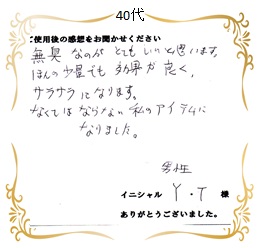 40代
ご使用後の感想をお聞かせください
無臭なのがとてもいいと思います。
ほんの少量でも効果が良く、
サラサラになります。
なくてはならない私のアイテムに
なりました。
男性
イニシャル Y・T 様
ありがとうございました。